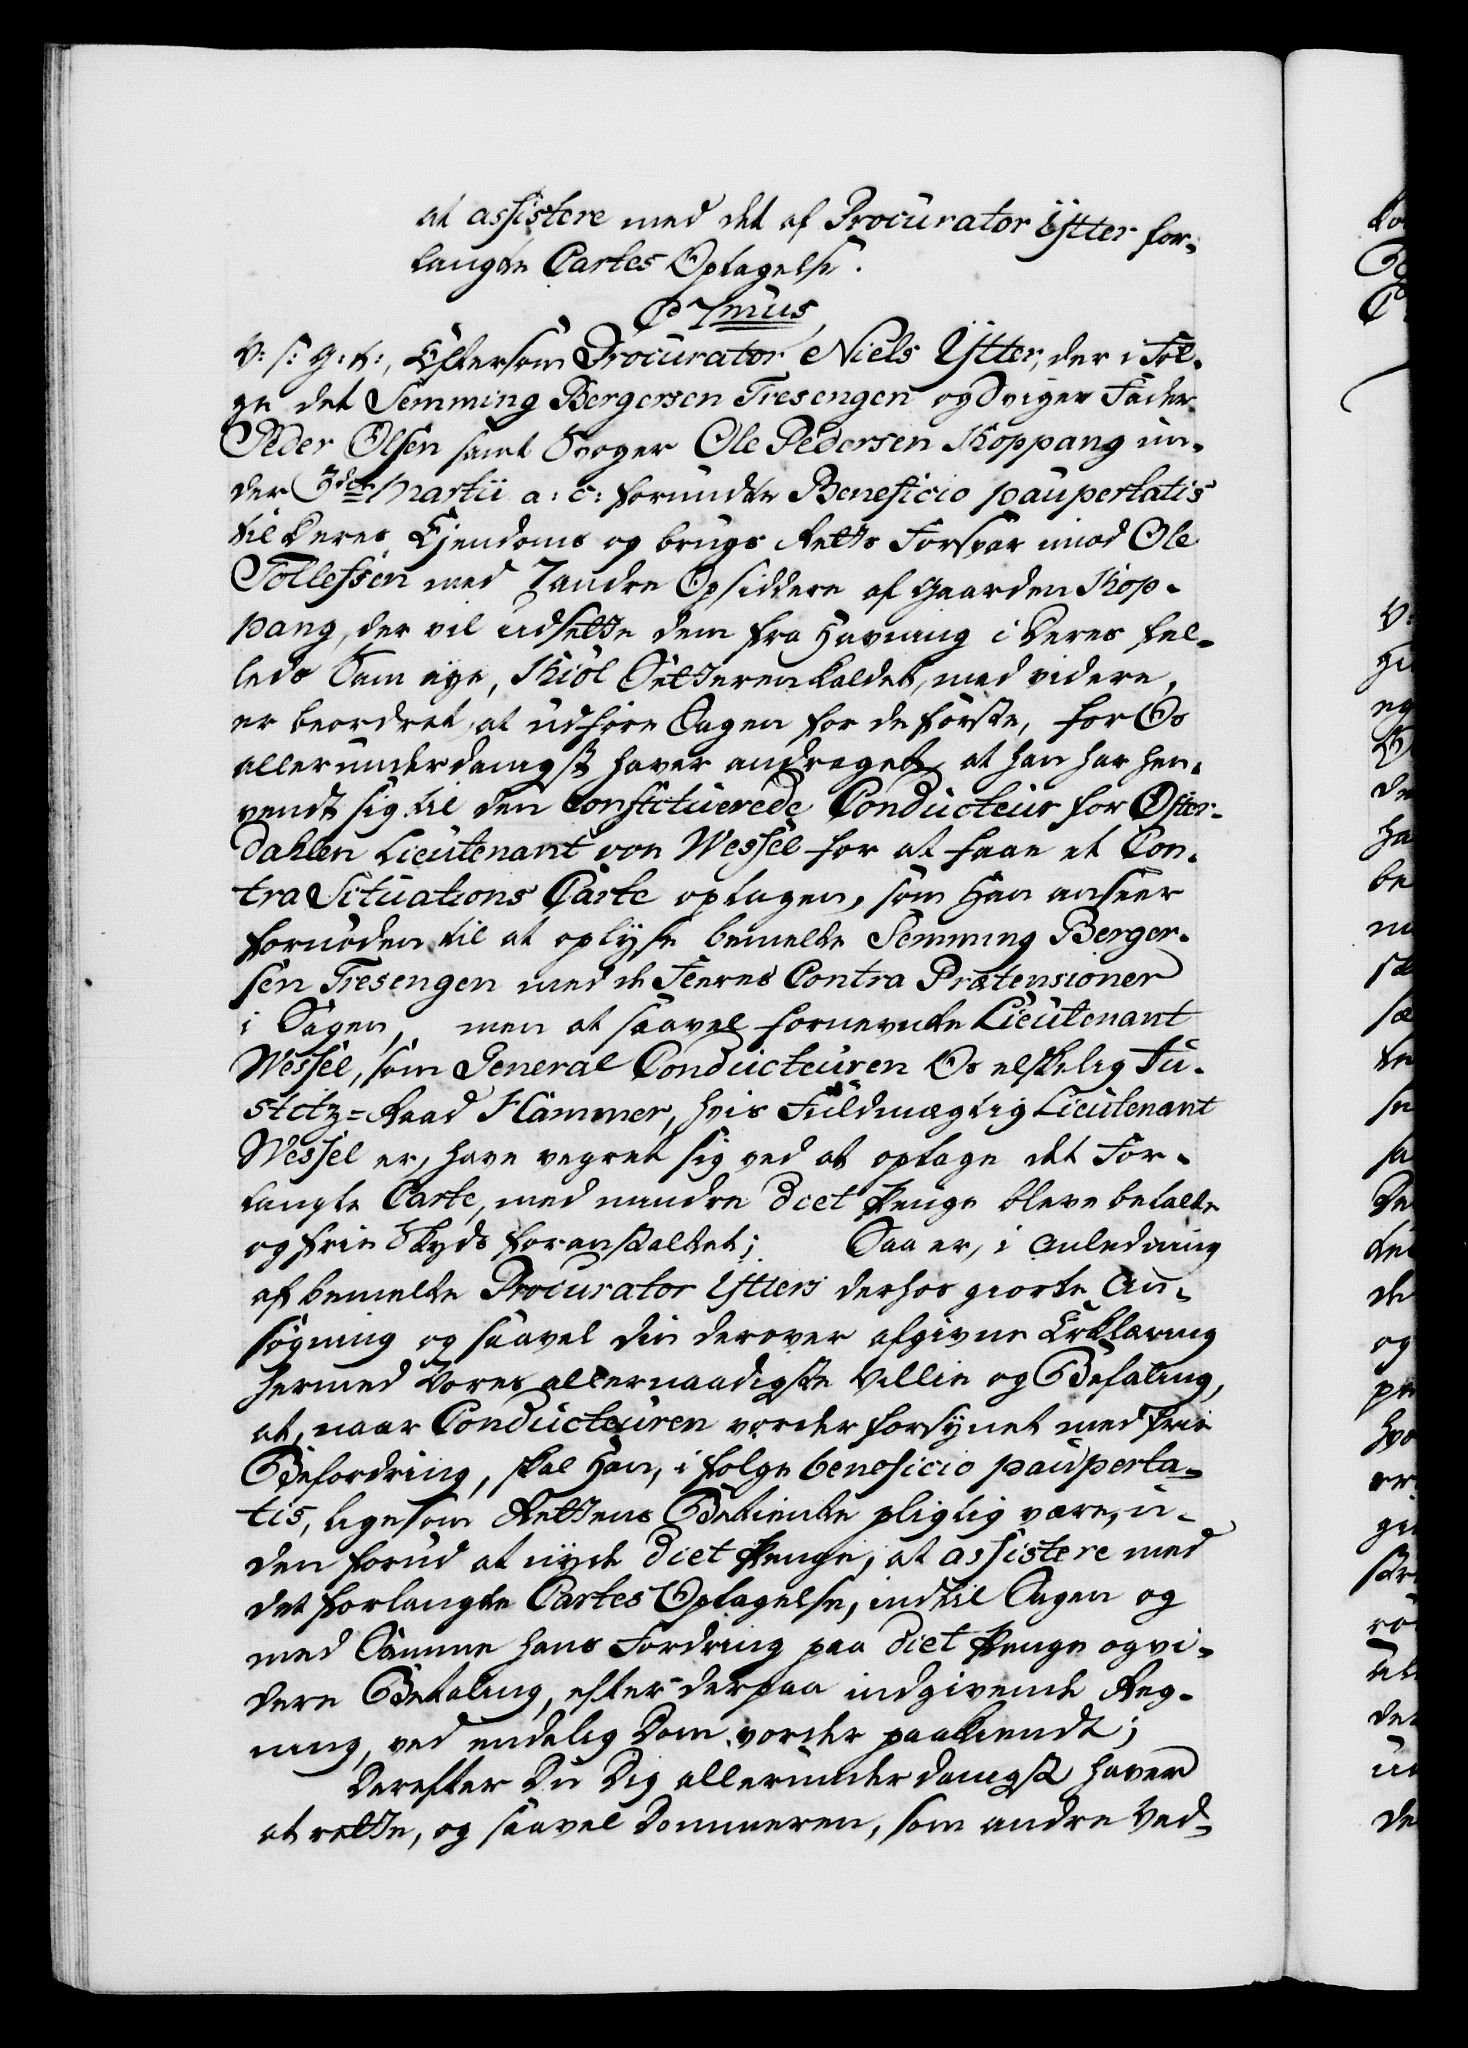 at assistere med det af Procurator Ytter for-
langte Cartes Optagelse.
C 7mus
V: S: G: A:, Eftersom Procurator Niels Ytter, der i Føl-
ge det Semming Bergersen Tresengen og Sviger Fader
Peder Olsen samt Svoger Ole Pedersen Koppang un-
der 3die Martii a: c: forundte Beneficio paupertatis
til deres Ejendoms og brugs Retts Forsvar imod Ole
Tollefsen med 7 andre Opsiddere af Gaarden Kop-
pang, der vil udsætte dem fra Havning i deres fel-
leds Sam eye, Kiøl Sætteren kaldet, med videre,
er beordret at udføre Sagen for de første, for Os
allerunderdanigst haver andraget, at han har hen-
vendt sig til den Constituerede Conducteur for Øster-
dahlen Lieutenant von Wessel for at faae et Con-
tra Situations Carte optagen, som Han anseer
fornøden til at oplyse bemelte Semming Berger-
sen Tresengen med de Fleeres Contra Prætensioner
i Sagen, men at saavel fornevnte Lieutenant
Wessel, som General Conducteuren Os elskelig Ju-
stitz-Raad Hammer, hvis Fuldmægtig Lieutenant
Wessel er, have vegret sig ved at optage det For-
langte Carte, med mindre Diet Penge bleve betalte
og frie Skyds foranstaltet; Saa er, i Anledning
af bemelte Procurator Ytters derhos giorte An-
søgning og saavel din derover afgivne Erklæring
hermed Vores allernaadigste Villie og Befaling,
at, naar Conducteuren vorder forsynet med frie
Befordring, skal Han, i følge beneficio pauperta-
tis, ligesom Rettens Betiente pligtig være, u-
den forud at nyde Diet Penge, at assistere med
det forlangte Cartes Optagelse, indtil Sagen og
med Samme hans Fordring paa Diet Penge og vi-
dere Betaling, efter derpaa indgivende Reg-
ning, ved endelig Dom vorder paakiendt;
Derefter Du Dig allerunderdanigst haver
at rette, og saavel Dommeren, som andre Ved-